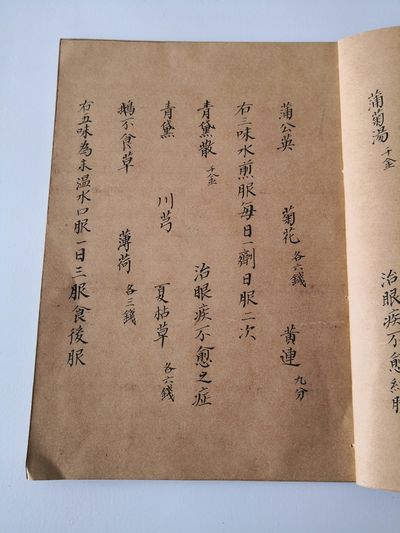 蒲菊湯 千金 治眼疾不愈
蒲公英 菊花 各六錢 黄連 九分
右三味水煎服每日一劑日服二次
青黛散 千金 治眼疾不愈之症
青黛 川芎 夏枯草 各六錢
鵝不食草 薄荷 各三錢
右五味為末温水口服一日三服食後服